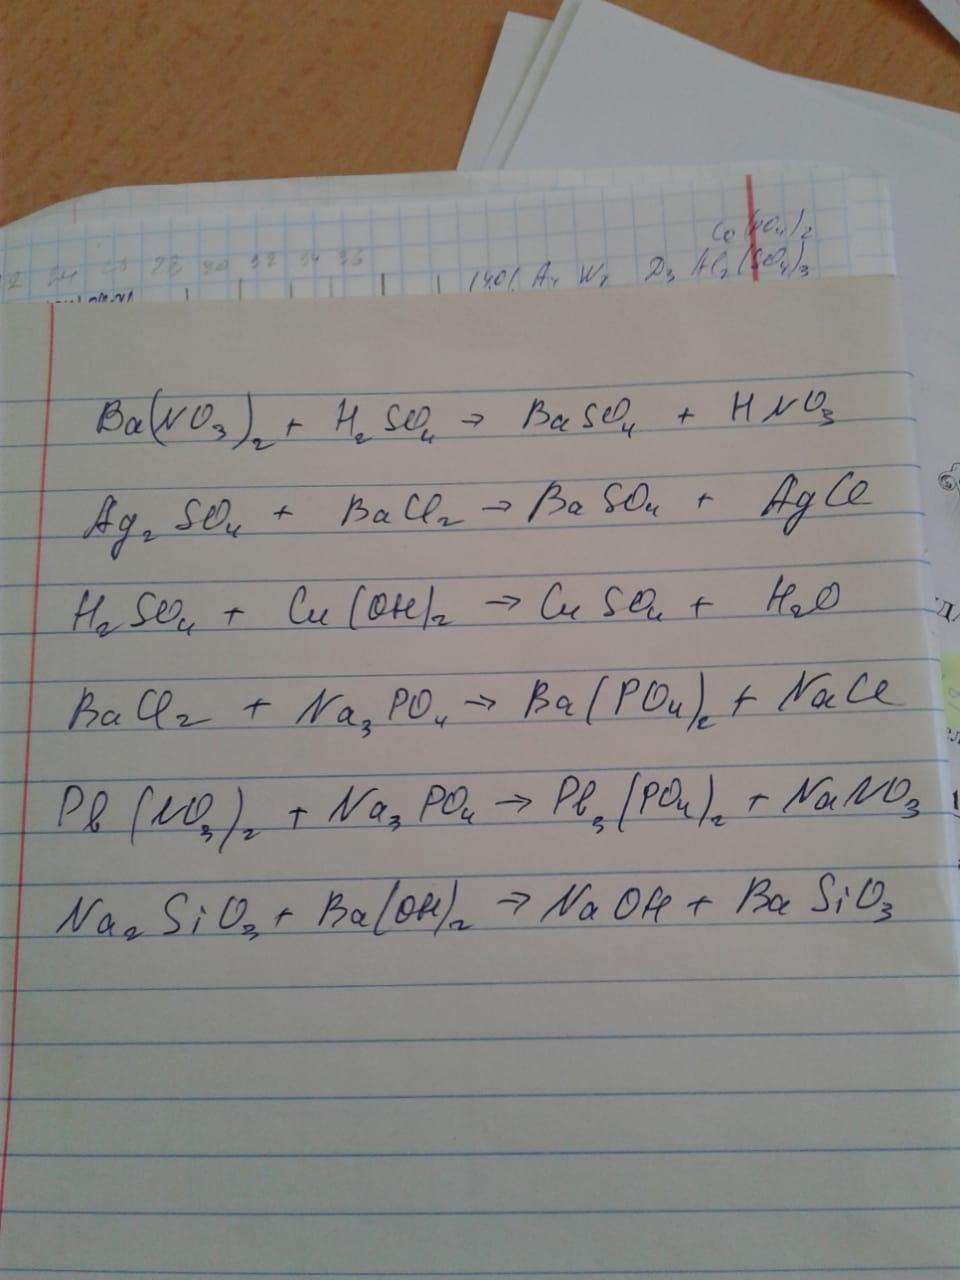 Co(PO₄)₂
22 24 28 30 32 34 36
Al₂(SO₄)₃
Ba(NO₃)₂ + H₂SO₄ → BaSO₄ + HNO₃
Ag₂SO₄ + BaCl₂ → BaSO₄ + AgCl
H₂SO₄ + Cu(OH)₂ → CuSO₄ + H₂O
BaCl₂ + Na₃PO₄ → Ba(PO₄)₂ + NaCl
Pb(NO₃)₂ + Na₃PO₄ → Pb₃(PO₄)₂ + NaNO₃
Na₂SiO₃ + Ba(OH)₂ → NaOH + BaSiO₃